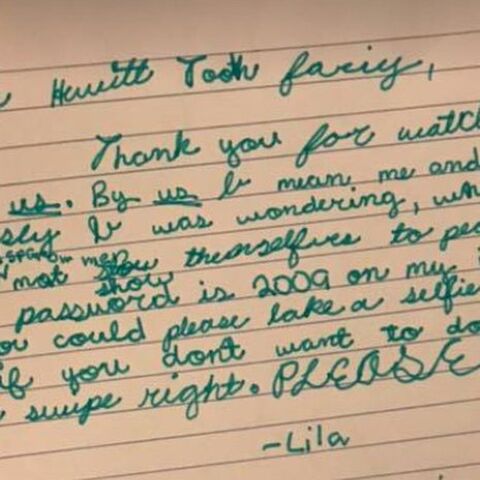 Hewitt Tooth fariy,
Thank you for watch
us. By us I mean me and
sly I was wondering, wh
not show themselfves to peo
show
password is 2009 on my
ou could please take a selfie
if you dont want to do
swipe right. PLEASE
-Lila